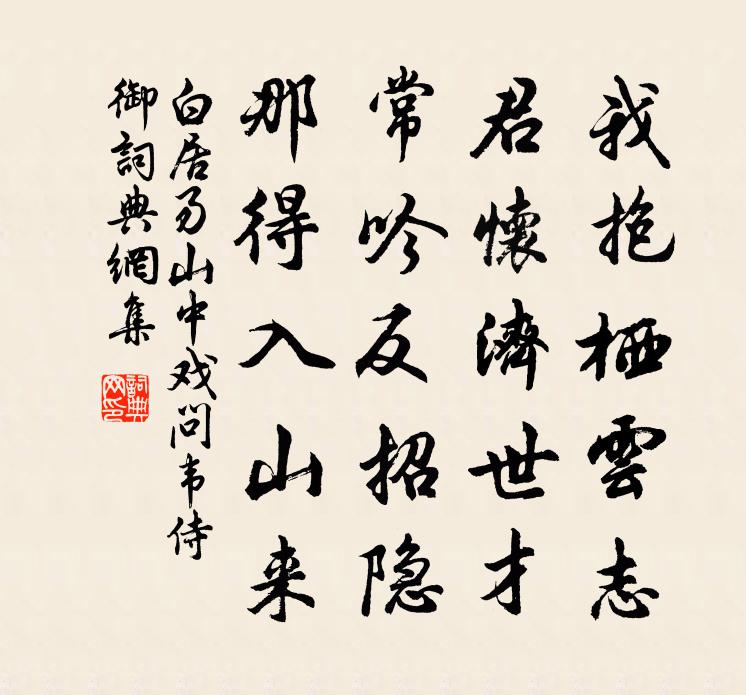 我抱栖雲志
君懷濟世才
常吟反招隐
那得入山来
白居易山中戏问韦侍
御詞典網集
詞典
网印